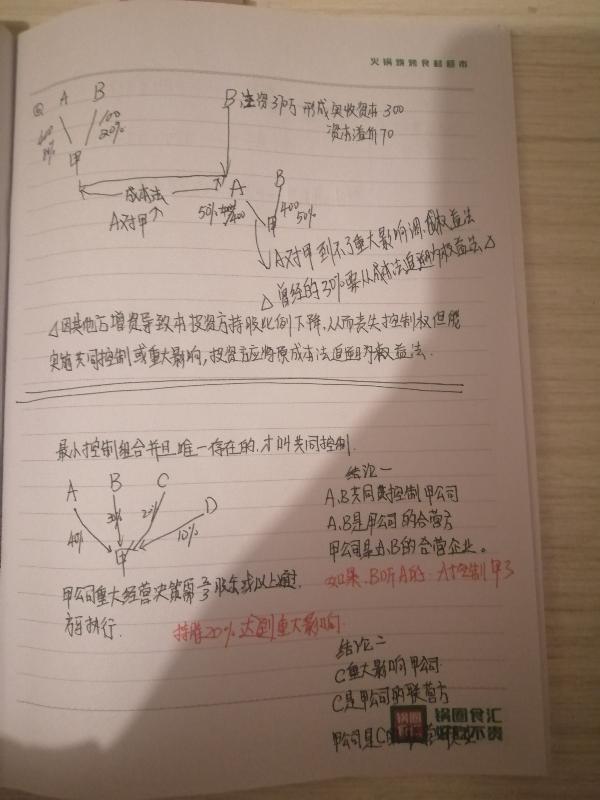 火锅烧烤食材超市
A B
B注资370万 形成实收资本 300
资本溢价70
100
20%
甲
成本法
A对甲
A B
50% 400
400
50%
甲
A对甲 达到不了重大影响调 权益法
△曾经的30%要从成本法追溯为权益法△
△因其他方增资导致本投资方持股比例下降,从而丧失控制权但能
实施共同控制或重大影响,投资方应将原成本法追溯为权益法.
最小控制组合并且唯一存在的,才叫共同控制.
A B C D
40% 30% 20% 10%
甲
甲公司重大经营决策需 2/3 股东或以上通过,
方可执行.
持股20%达到重大影响
结论一
A,B共同控制甲公司
A,B是甲公司的合营方
甲公司是A,B的合营企业。
如果,B听A的:A控制甲了
结论二
C重大影响甲公司
C是甲公司的联营方
甲公司是C的
锅圈食汇
好吃不贵